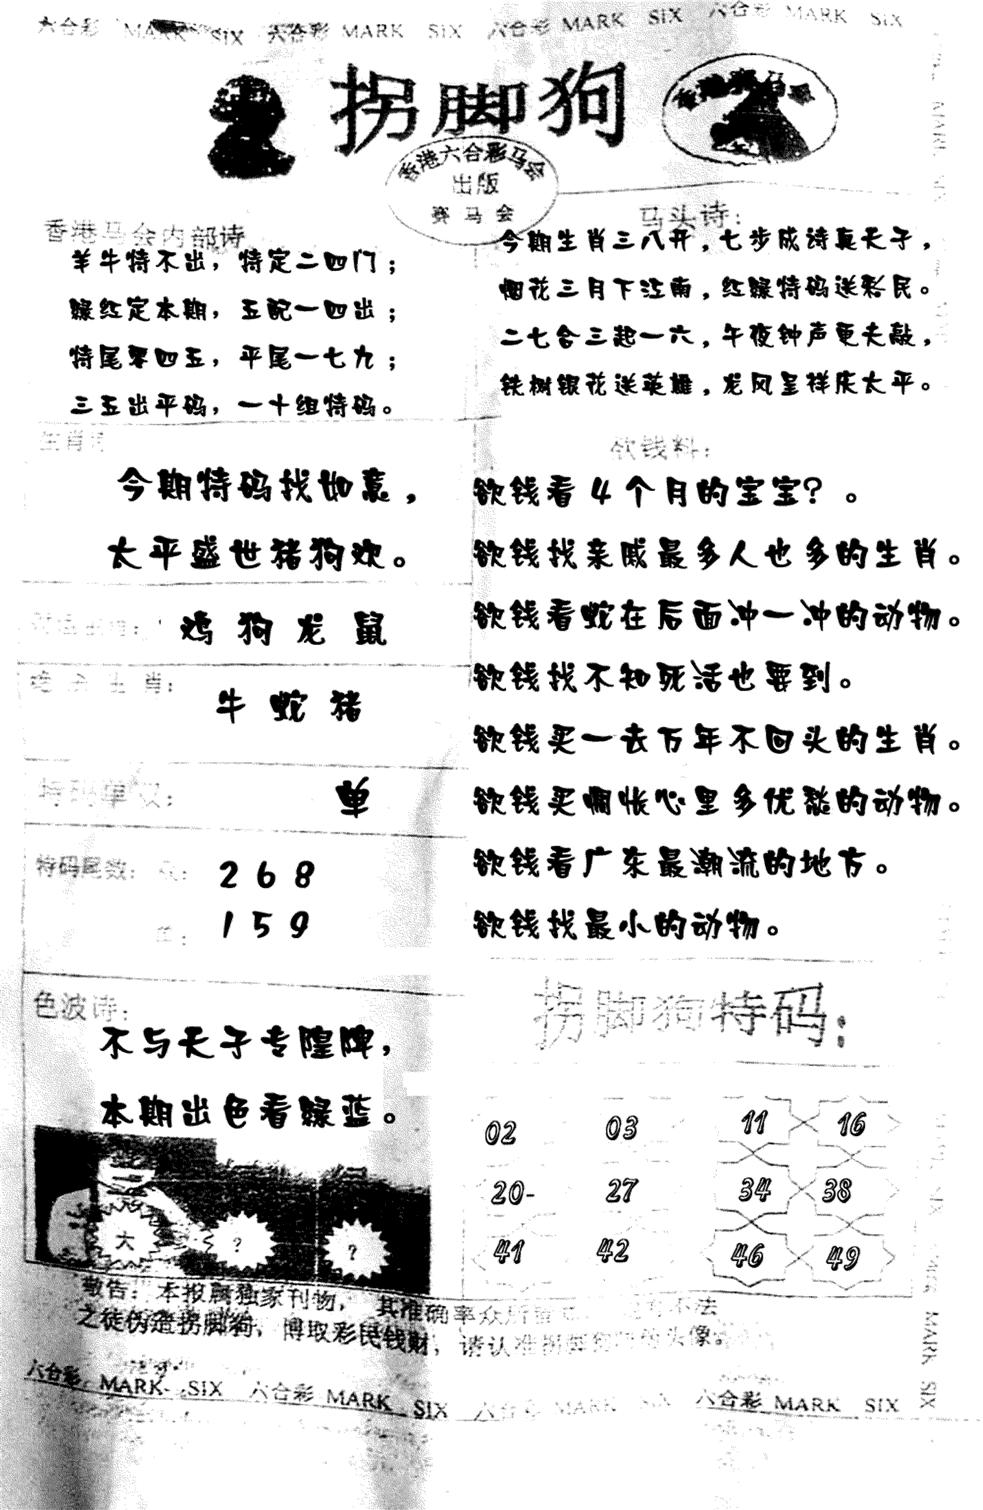 六合彩 MARK SIX 六合彩 MARK SIX 六合彩 MARK SIX 六合彩 MARK SIX
拐脚狗
香港赛马会
香港六合彩马会
出版
赛马会
香港马会内部诗
羊牛特不出，特定二四门；
绿红定本期，五配一四出；
特尾零四五，平尾一七九；
三五出平码，一十组特码。
马头诗：
今期生肖三八开，七步成诗真天子，
烟花三月下江南，红绿特码送彩民。
二七合三起一六，午夜钟声更夫敲，
铁树银花送英雄，龙凤呈祥庆太平。
生肖
今期特码找如意，
太平盛世猪狗欢。
鸡狗龙鼠
生肖：
牛蛇猪
特码单双：
单
特码尾数：
268
159
色波诗：
不与天子专隍牌，
本期出色看绿蓝。
大
？
？
欲钱料：
欲钱看4个月的宝宝？。
欲钱找亲戚最多人也多的生肖。
欲钱看蛇在后面冲一冲的动物。
欲钱找不知死活也要到。
欲钱买一去万年不回头的生肖。
欲钱买惆怅心里多优愁的动物。
欲钱看广东最潮流的地方。
欲钱找最小的动物。
拐脚狗特码：
02 03 11 16
20- 27 34 38
41 42 46 49
敬告：本报属独家刊物，其准确率众所 不法
之徒伪造拐脚狗，博取彩民钱财，请认准拐脚狗 头像。
六合彩 MARK SIX 六合彩 MARK SIX 六合彩 MARK SIX 六合彩 MARK SIX
MARK SIX